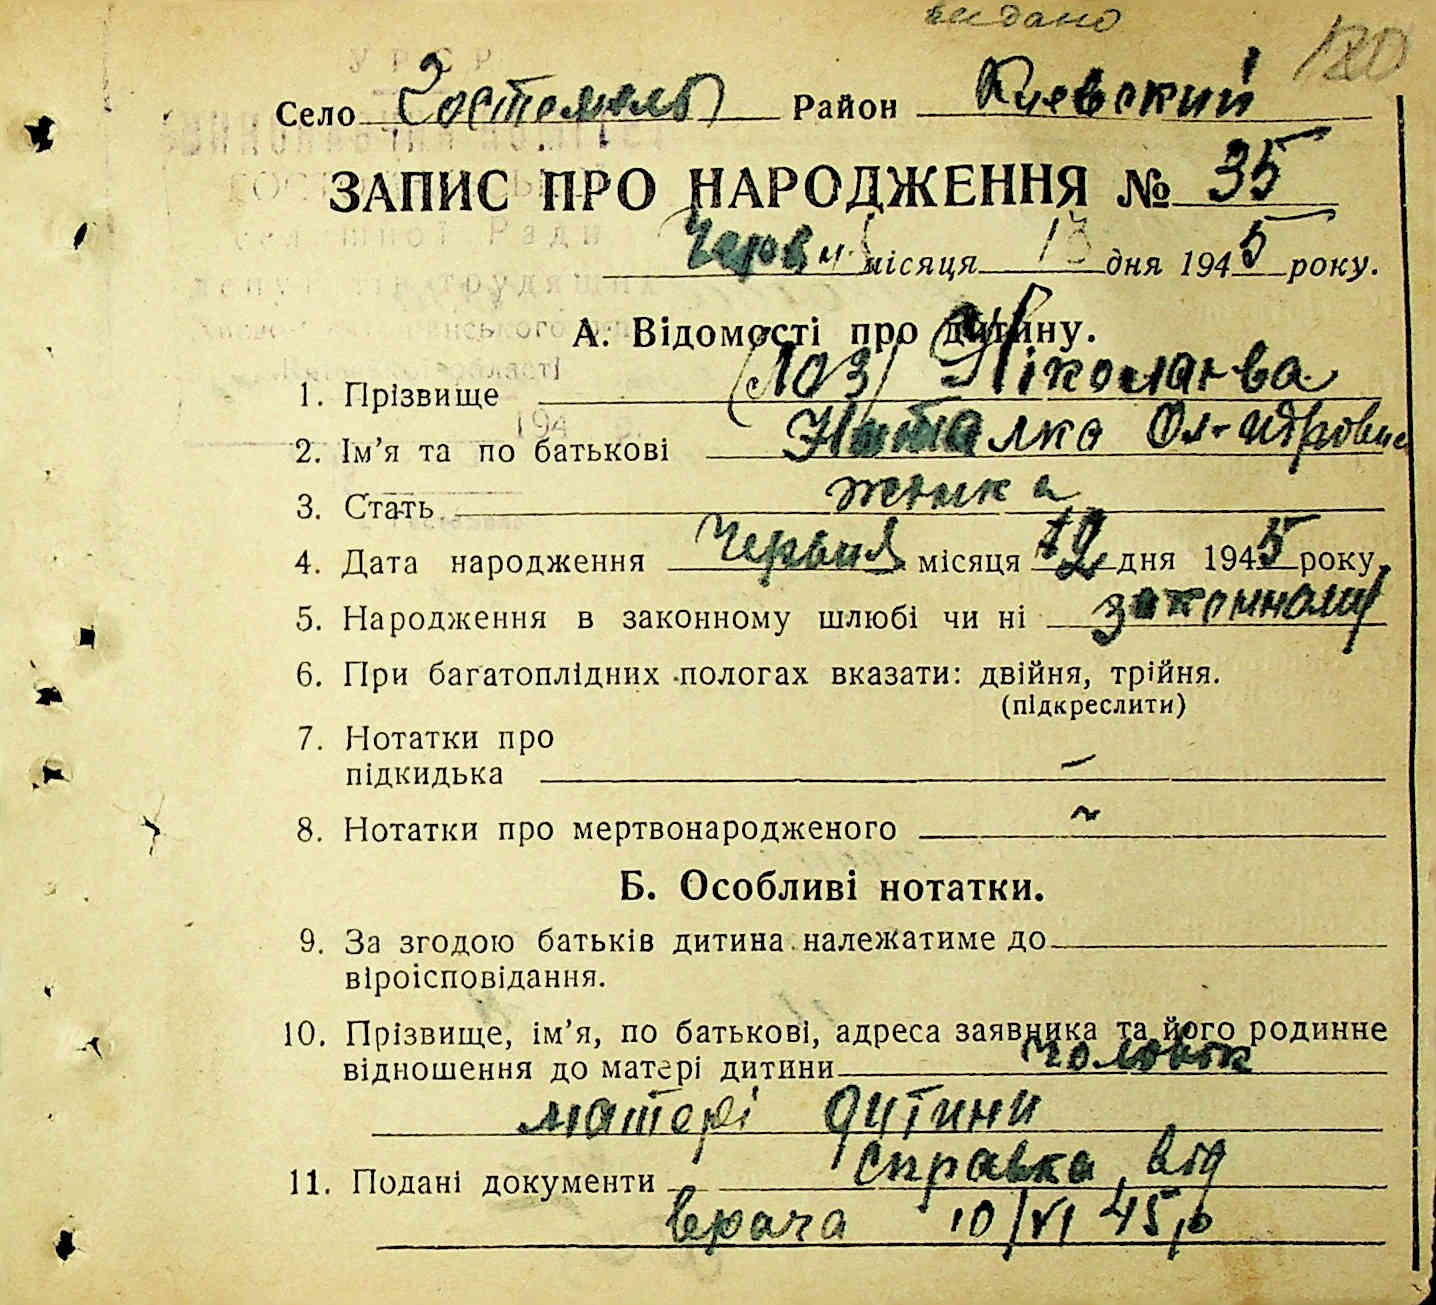 видано
120
Село Гостомель Район Киевский
ЗАПИС ПРО НАРОДЖЕННЯ № 35
Червня місяця 13 дня 1945 року.
А. Відомості про дитину.
1. Прізвище (Лоз) Ніколаєва
2. Ім'я та по батькові Наталка
3. Стать жінка
4. Дата народження Червня місяця 12 дня 1945 року
5. Народження в законному шлюбі чи ні законному
6. При багатоплідних пологах вказати: двійня, трійня.
(підкреслити)
7. Нотатки про
підкидька —
8. Нотатки про мертвонародженого ~
Б. Особливі нотатки.
9. За згодою батьків дитина належатиме до
віроісповідання.
10. Прізвище, ім'я, по батькові, адреса заявника та його родинне
відношення до матері дитини чоловік
матері дитини
11. Подані документи справка від
врача 10/VI 45 р